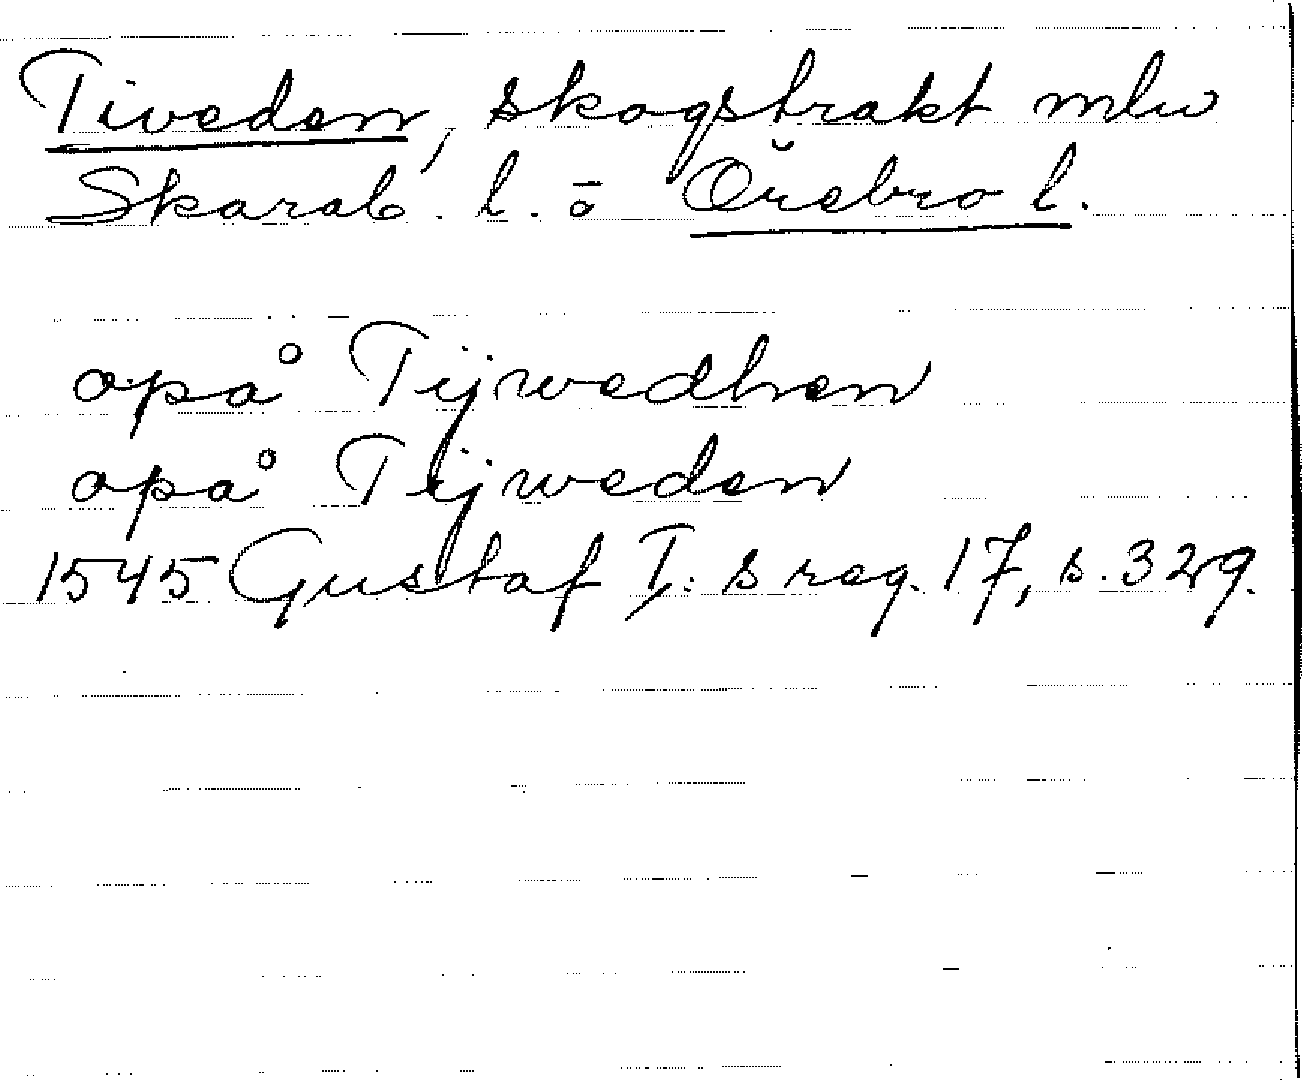 Tiveden, skogstrakt mlw
Skarab. l. o Örebro l.
opå Tijwedhen
opå Tijweden
1545 Gustaf I:s reg. 17, s. 329.